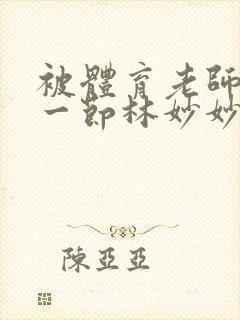 被體育老師
一節林妙妙
陳亞亞